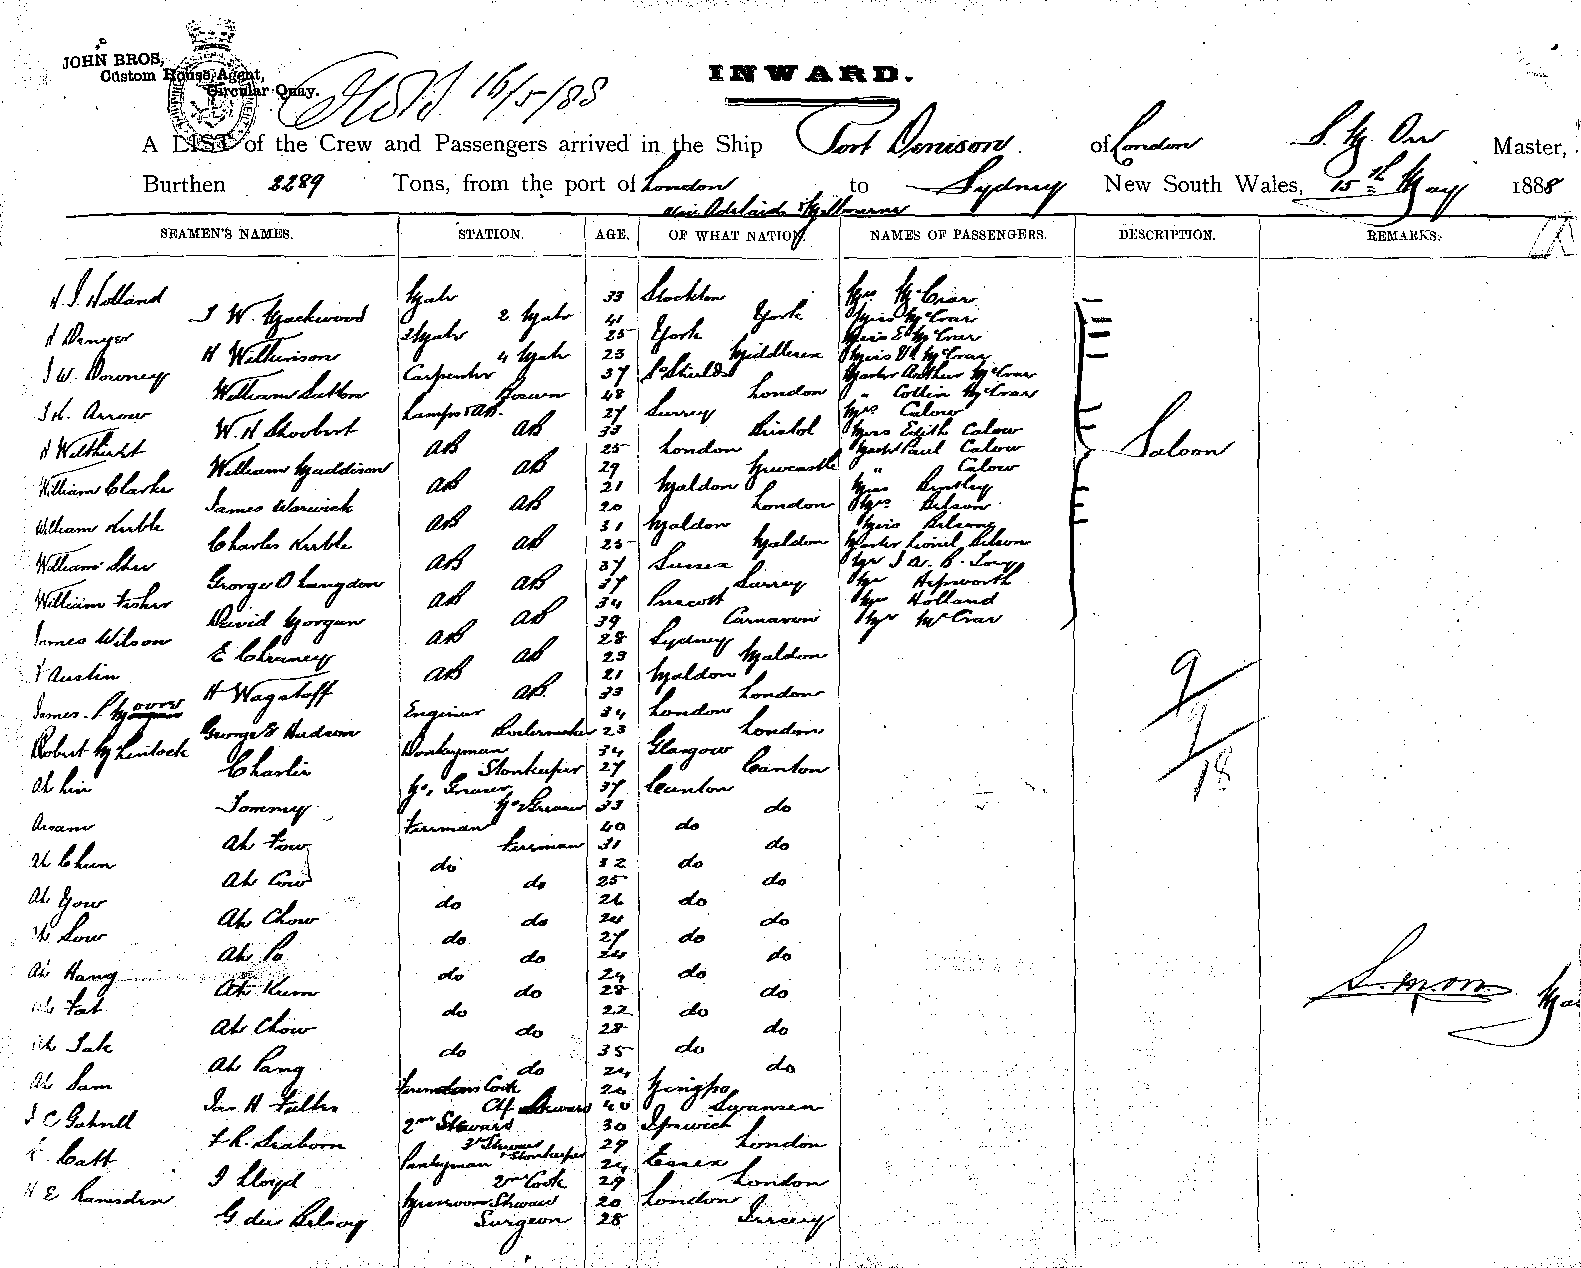 JOHN BROS,
Custom House Agent,
Circular Quay.
16/5/88
INWARD.
A LIST of the Crew and Passengers arrived in the Ship Port Denison of London Master,
Burthen 2289 Tons, from the port of London to Sydney New South Wales, 15th May 1888
via Adelaide & Melbourne
SEAMEN'S NAMES. STATION. AGE. OF WHAT NATION. NAMES OF PASSENGERS. DESCRIPTION. REMARKS.
H. J. Holland Mate 33 Stockton Mrs McCrae
J W. Mackwood 2 Mate 41 York Miss McCrae
H Denyer 3 Mate 25 York Miss E McCrae
H Wilkinson 4 Mate 23 Middlesex Miss McCrae
J W. Downey Carpenter 37 So Shields Master Arthur McCrae
William Sutton Bosun 48 London " Collin McCrae
J H. Arrow Lamps & AB. 27 Surrey Mrs Calow
W. H Shoobert AB 33 Bristol Miss Edith Calow
H AB 25 London Paul Calow
William Maddison AB 29 Newcastle " Calow
William Clarke AB 21 Maldon Miss Bentley
James Warwick AB 20 London Mrs Belson
William Keeble AB 31 Maldon Miss Belson
Charles Keeble AB 25 Maldon Master Lionel Belson
William AB 37 Sussex Mr J W. B.
George D Langdon AB 37 Surrey Mr Hepworth
William Fisher AB 34 Prescott Mr Holland
David Morgan AB 39 Carnarvon Mr McCrae
Saloon
James Wilson AB 28 Sydney
E Cherney AB 23 Maldon
F Austin AB 21 Maldon
H Wagstaff AB. 33 London
James. P Moore Engineer 34 London
George Hudson Boilermaker 23 London
Robert McLintock Donkeyman 34 Glasgow
Charlie Storekeeper 27 Canton
Ah Lin No 1 Greaser 37 Canton
Tommy No 2 Greaser 33 do
Assam Fireman 40 do
Ah Fow Fireman 31 do
Ah Chun do 32 do
Ah Cow do 25 do
Ah Yow do 26 do
Ah Chow do 24 do
Ah Sow do 27 do
Ah Po do 24 do
Ah Hang do 24 do
Ah Kum do 28 do
Ah Fat do 22 do
Ah Chow do 28 do
Ah Tak do 35 do
Ah Pang do 24 do
Ah Sam Firemens Cook 20 Ningpo
Jas H Ch Steward 40 Swansea
J C 2nd Steward 30 Ipswich
F R. Seaborn 3rd Steward & Storekeeper 29 London
Catt Pantryman 24 Essex
J Lloyd 2nd Cook 29 London
H E Ramsden Messroom Steward 20 London
G de Surgeon 28 Jersey
9
9
18